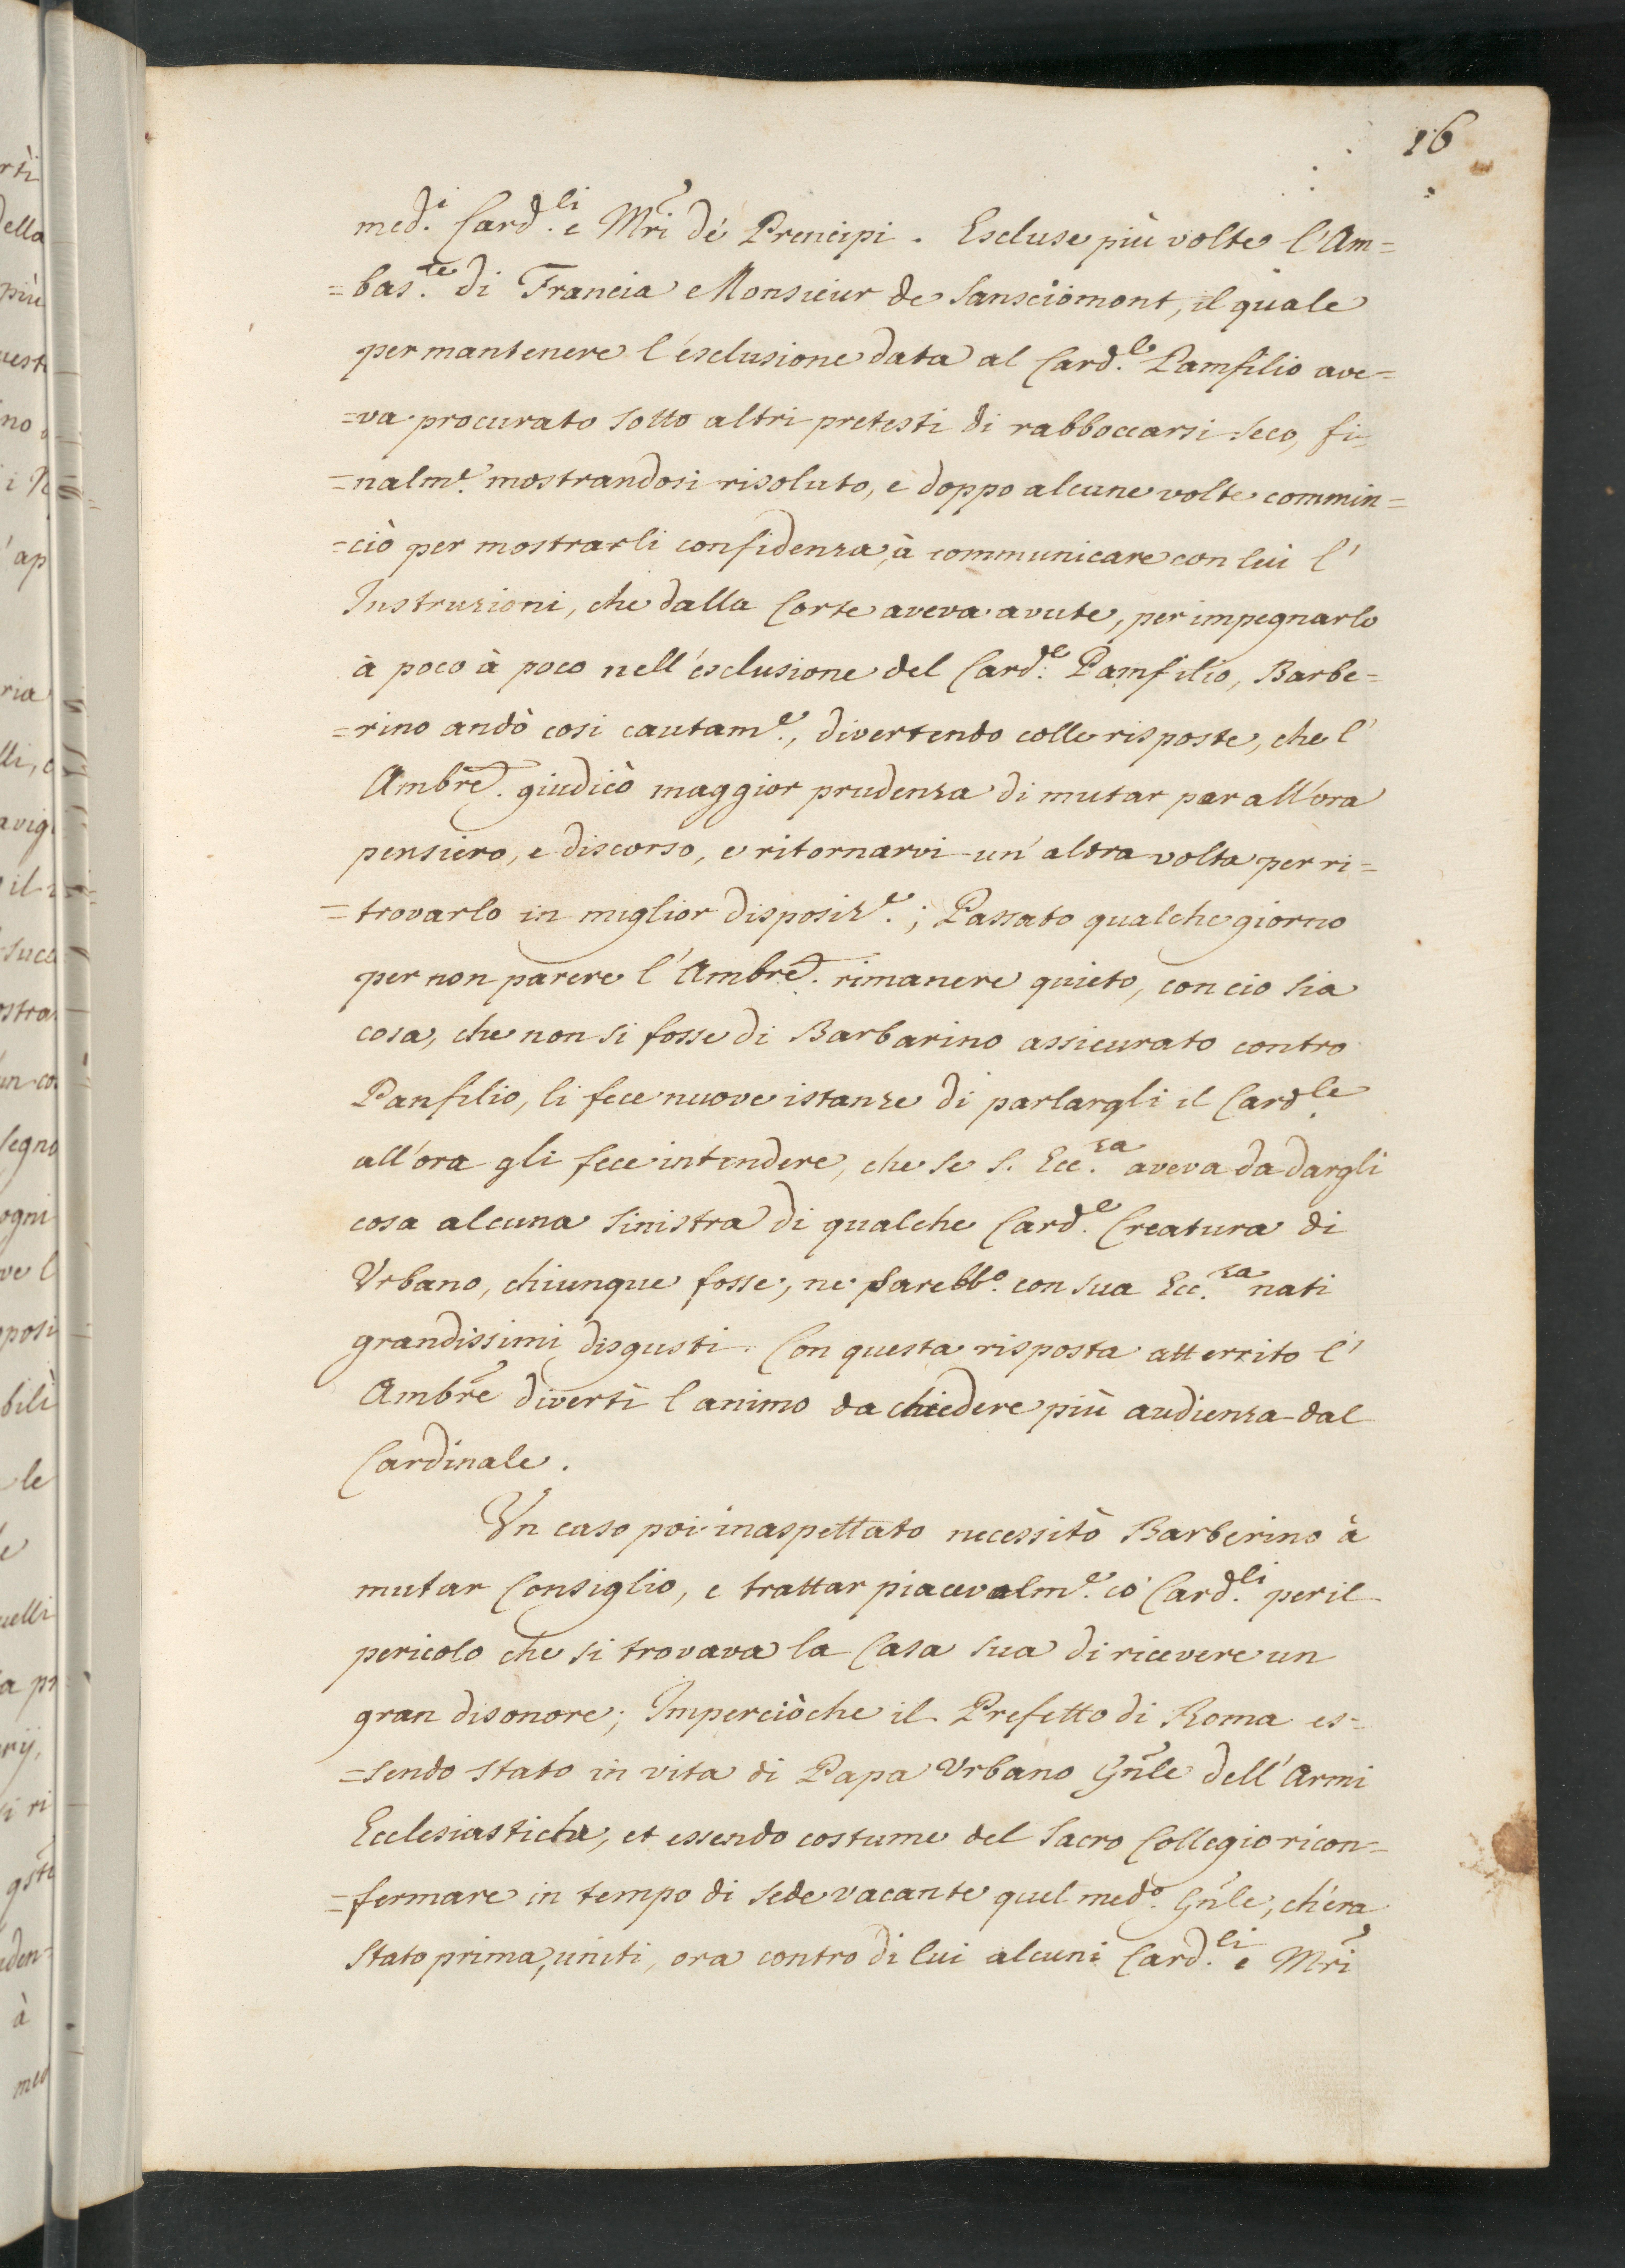 16
med.i Card.li e Mri de' Prencipi. Escluse più volte l'Am=
=bas.te di Francia Monsieur de Sansciomont, il quale
per mantenere l'esclusione data al Card.le Pamfilio ave=
=va procurato sotto altri pretesti di rabboccarsi seco, fi=
=nalm.e mostrandosi risoluto, e doppo alcune volte commin=
=ciò per mostrarli confidenza, à communicare con lui l'
Instruzioni, che dalla Corte aveva avute, per impegnarlo
à poco à poco nell'esclusione del Card.le Pamfilio, Barbe=
=rino andò cosi cautam.e, divertendo colle risposte, che l'
Ambre. giudicò maggior prudenza di mutar per all'ora
pensiero, e discorso, e ritornarvi un'altra volta per ri=
=trovarlo in miglior disposiz.e; Passato qualche giorno
per non parere l'Ambre. rimanere quieto, con cio sia
cosa, che non si fosse di Barbarino assicurato contro
Panfilio, li fece nuove istanze di parlargli il Card.le
all'ora gli fece intendere, che se S. Ecc.za aveva da dargli
cosa alcuna sinistra di qualche Card.e Creatura di
Urbano, chiunque fosse, ne sarebb.o con sua Ecc.za nati
grandissimi disgusti. Con questa risposta atterrito l'
Ambre divertì l'animo da chiedere più audienza dal
Cardinale.
Un caso poi inaspettato necessitò Barberino à
mutar Consiglio, e trattar piacevolm.e co' Card.li per il
pericolo che si trovava la Casa sua di ricevere un
gran disonore; Imperciòche il Prefetto di Roma es=
=sendo stato in vita di Papa Urbano Gnle dell'Armi
Ecclesiastiche, et essendo costume del Sacro Collegio ricon=
=fermare in tempo di sede vacante quel med.o Gnle, ch'era
stato prima, uniti, ora contro di lui alcuni Card.li e Mri